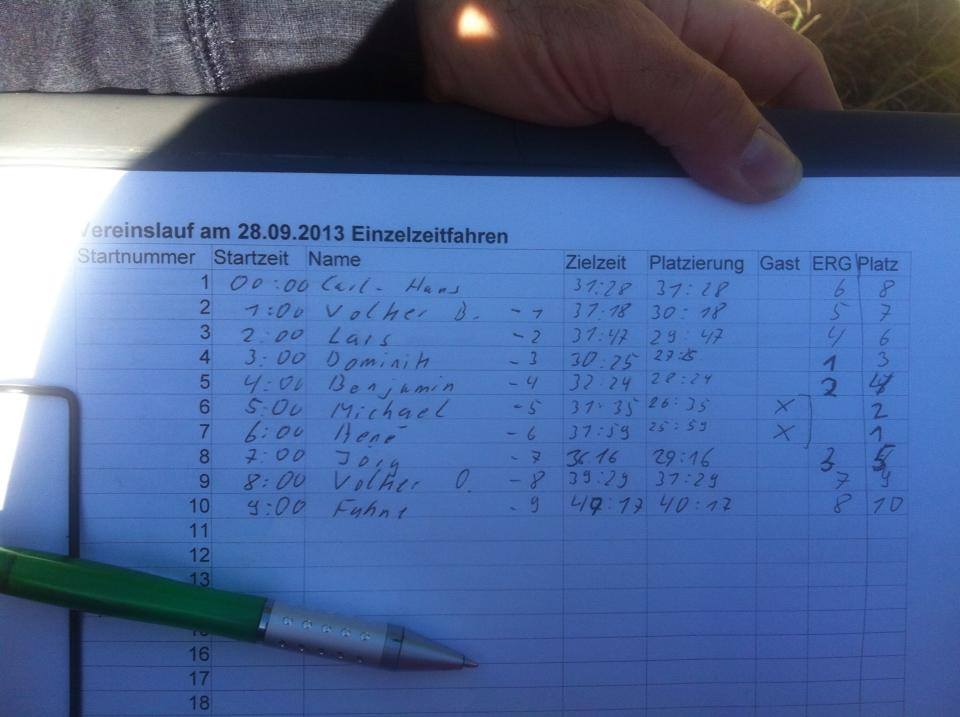 Vereinslauf am 28.09.2013 Einzelzeitfahren
Startnummer Startzeit Name Zielzeit Platzierung Gast ERG Platz
1 00:00 Carl-Hans 31:28 31:28 6 8
2 1:00 Volker B. -1 31:18 30:18 5 7
3 2:00 Lars -2 31:47 29:47 4 6
4 3:00 Dominik -3 30:25 27:25 1 3
5 4:00 Benjamin -4 32:24 28:24 2 4
6 5:00 Michael -5 31:35 26:35 X 2
7 6:00 René -6 31:59 25:59 X 1
8 7:00 Jörg -7 36:16 29:16 3 5
9 8:00 Volker O. -8 39:29 31:29 7 9
10 9:00 -9 49:17 40:17 8 10
11
12
13
16
17
18